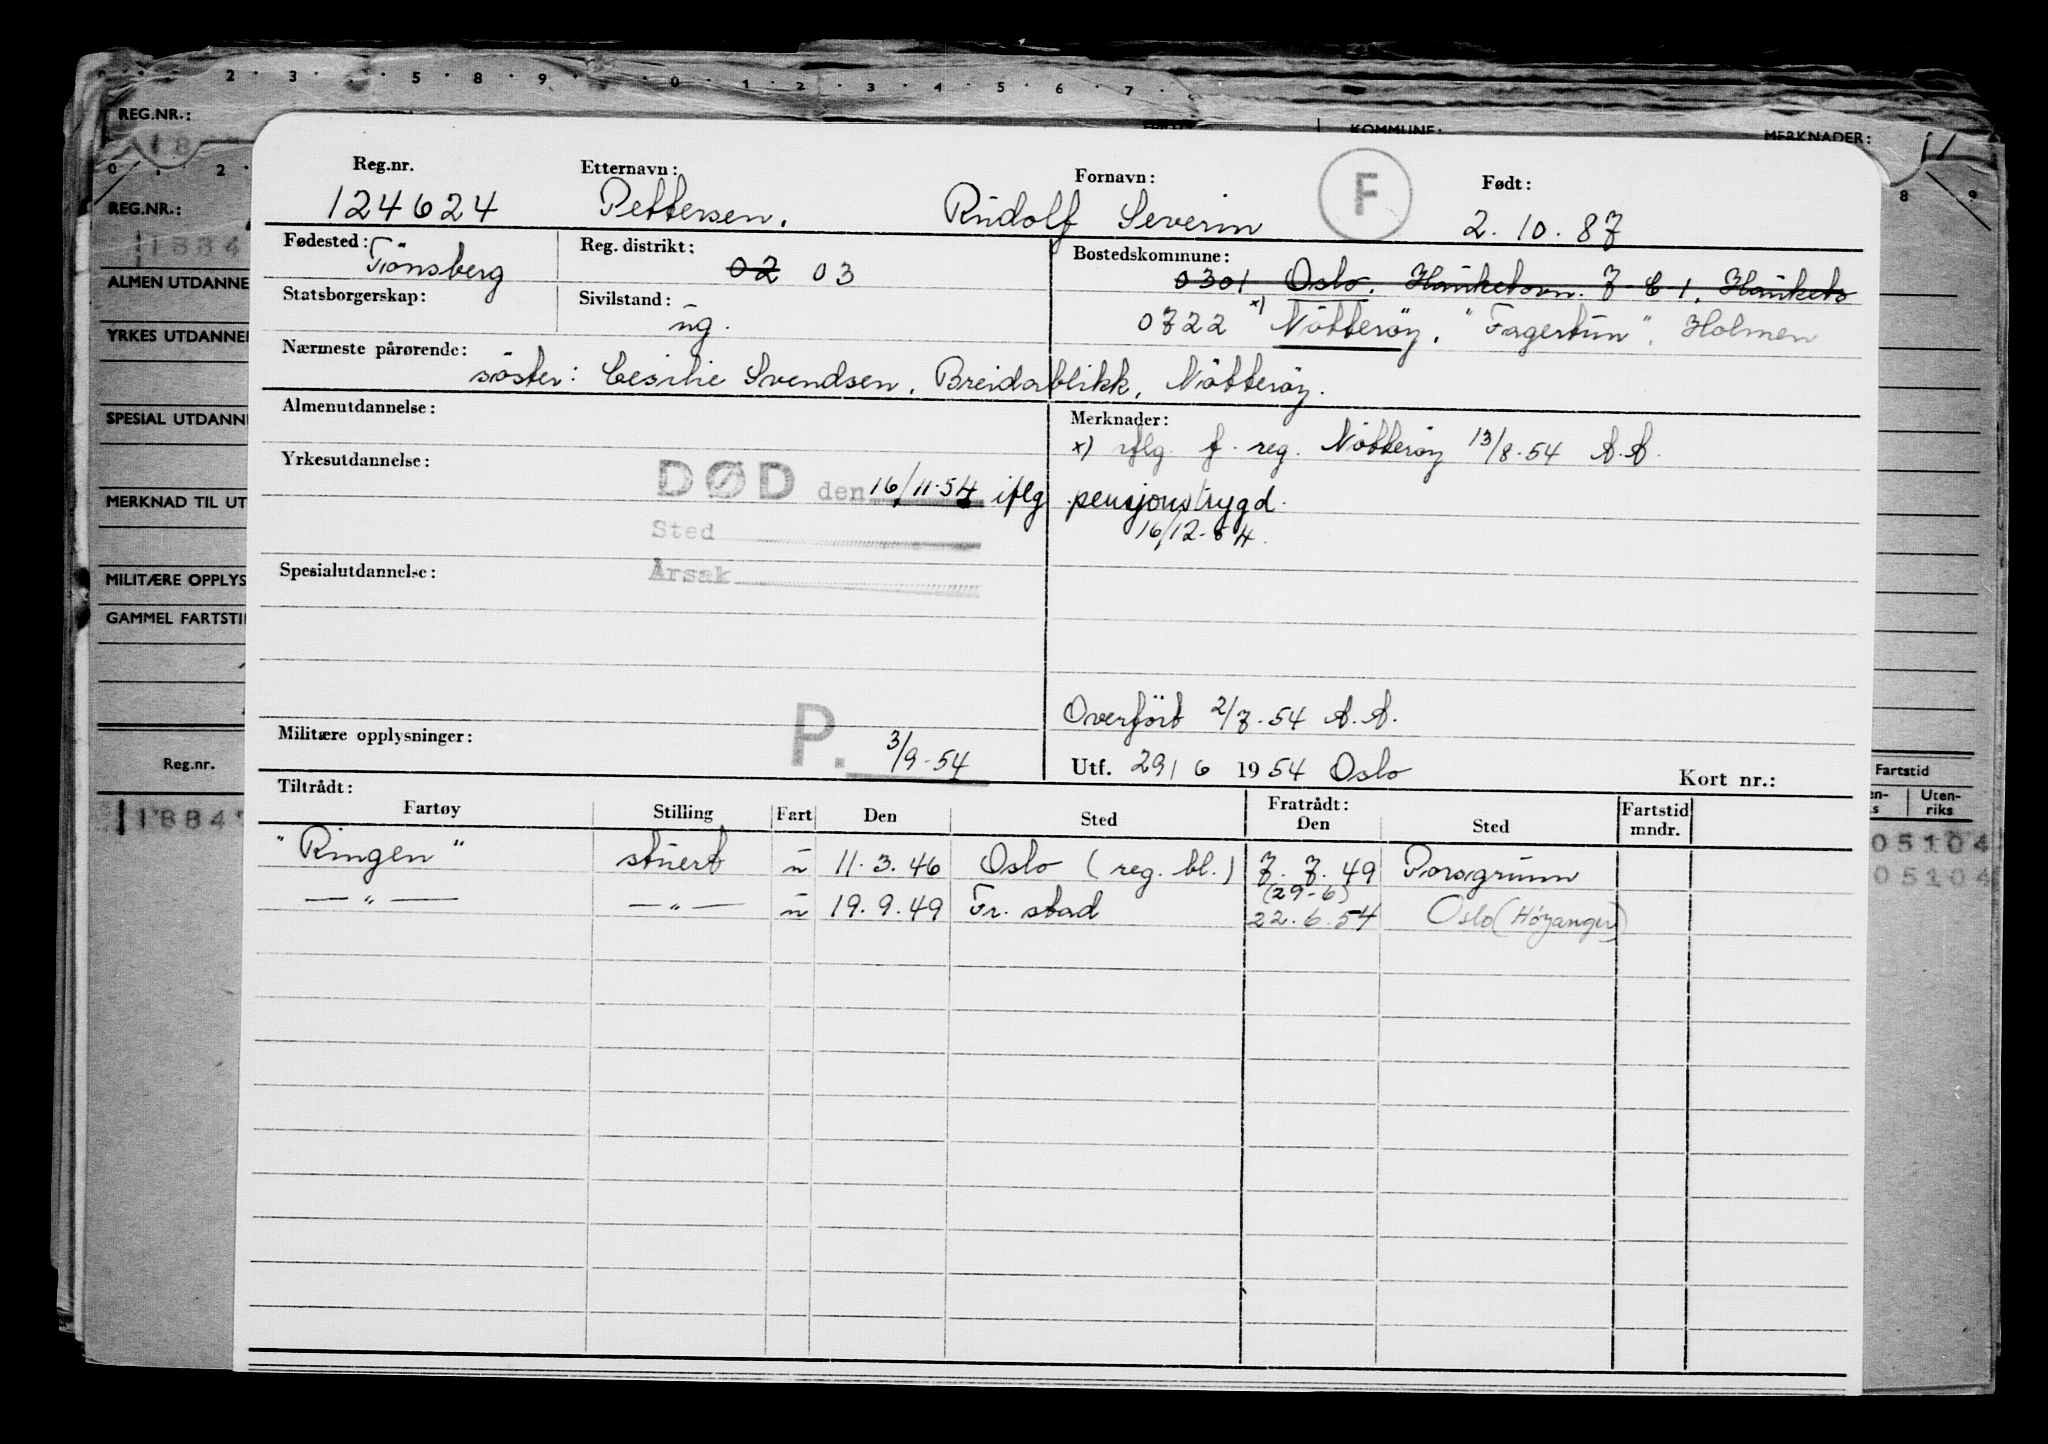 2 3 5 8 9 0 1 2 3 4 5 6 7
REG.NR.:
KOMMUNE:
MERKNADER:
11
0 2
8 9
REG.NR.:
ALMEN UTDANNE
YRKES UTDANNE
SPESIAL UTDANN
MERKNAD TIL UT
MILITÆRE OPPLYS
GAMMEL FARTSTI
Reg.nr.
Fartstid
Uten-
riks
05104
05104
Reg.nr. Etternavn: Fornavn: F Født:
124624 Pettersen. Rudolf Severin 2.10.87
Fødested: Tönsberg Reg. distrikt: 02 03 Bostedskommune:
0301 Oslo.
Statsborgerskap: Sivilstand: ug. 0722 x) Nötteröy. "Fagertun". Holmen
Nærmeste pårørende:
söster: Cesilie Svendsen. Breidablikk, Nötteröy.
Almenutdannelse: Merknader:
x) iflg. f. reg. Nötteröy 13/8-54 A.A.
Yrkesutdannelse:
DØD den 16/11-54 iflg pensjonstrygd.
16/12-54.
Sted
Årsak
Spesialutdannelse:
Overfört 2/7-54 A.A.
Militære opplysninger: P. 3/9-54
Utf. 29/6 1954 Oslo Kort nr.:
Tiltrådt: Fratrådt:
Fartøy Stilling Fart Den Sted Den Sted Fartstid mndr.
"Ringen" stuert u 11.3.46 Oslo (reg. bl.) 7.7.49 Porsgrunn
(29-6)
—"— —"— u 19.9.49 Fr.stad 22.6.54 Oslo (Höyanger)